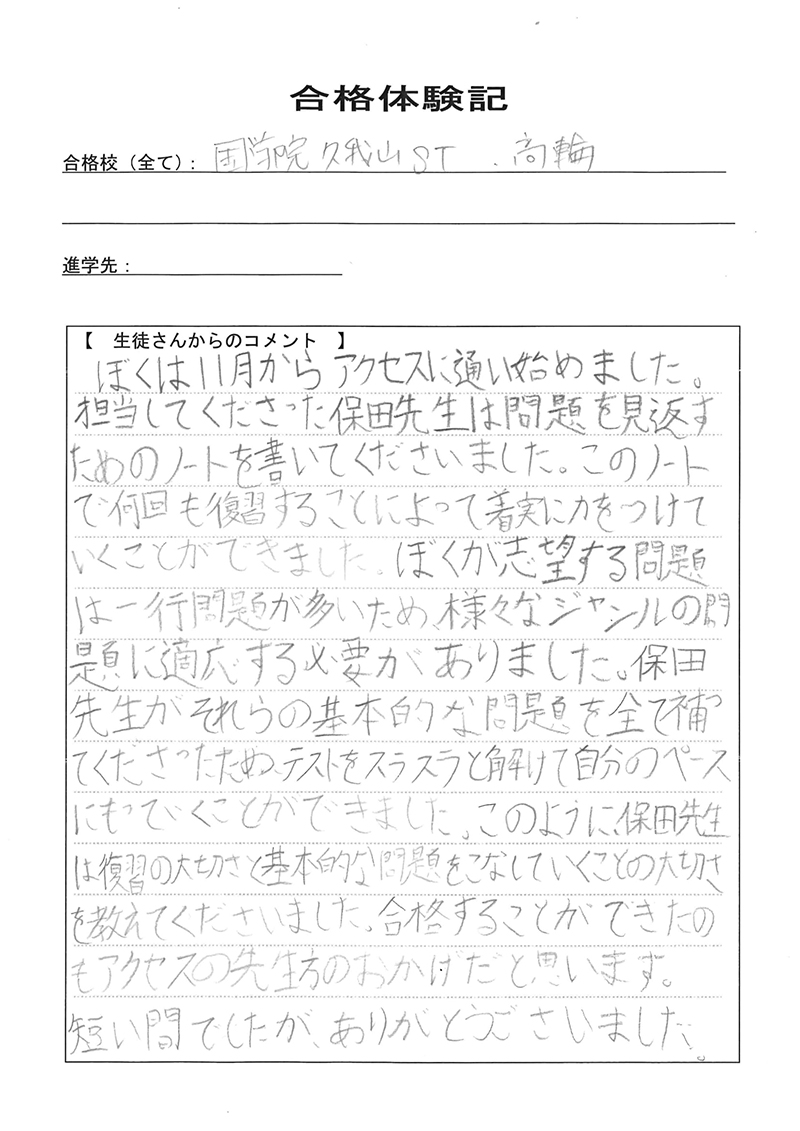 合格体験記
合格校（全て）： 国学院久我山ST 、高輪
進学先：
【　生徒さんからのコメント　】
ぼくは11月からアクセスに通い始めました。
担当してくださった保田先生は問題を見返す
ためのノートを書いてくださいました。このノート
で何回も復習することによって着実に力をつけて
いくことができました。ぼくが志望する問題
は一行問題が多いため、様々なジャンルの問
題に適応する必要がありました。保田
先生がそれらの基本的な問題を全て補っ
てくださったため、テストをスラスラと解けて自分のペース
にもっていくことができました。このように、保田先生
は復習の大切さと基本的な問題をこなしていくことの大切さ
を教えてくださいました。合格することができたの
もアクセスの先生方のおかげだと思います。
短い間でしたが、ありがとうございました。